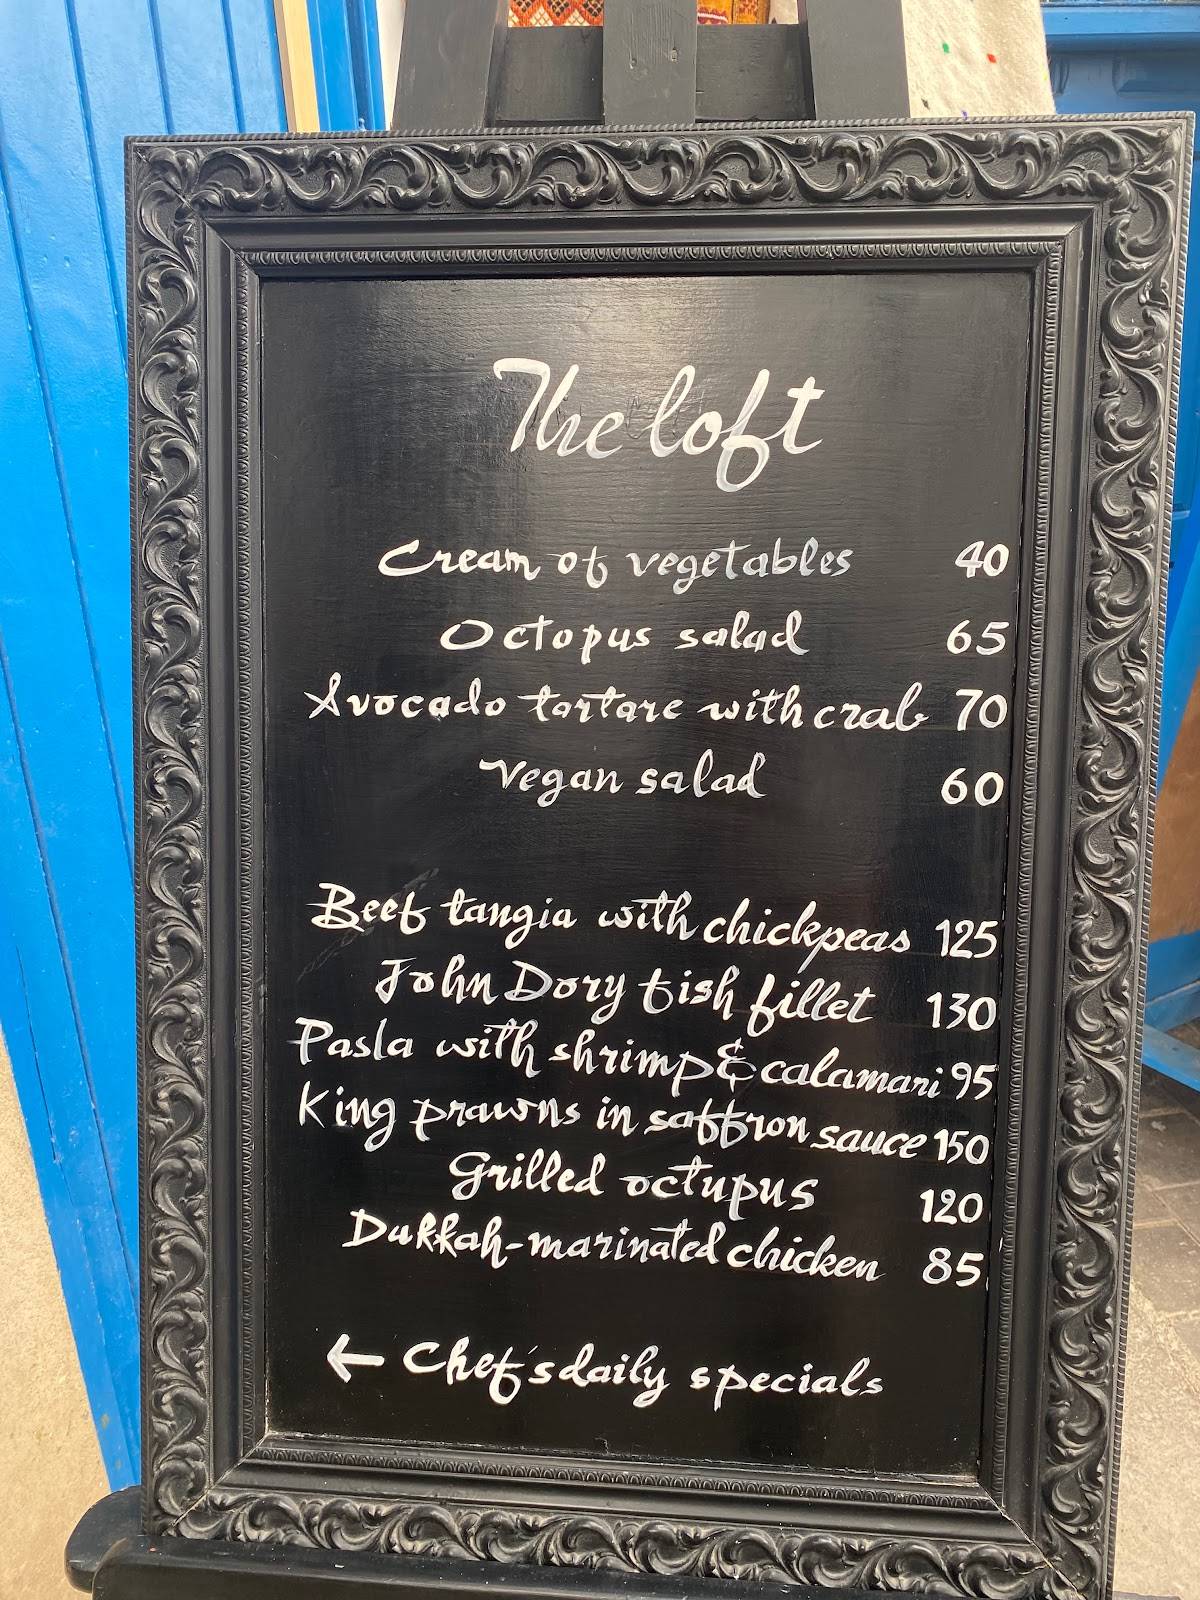 The loft
Cream of vegetables 40
Octopus salad 65
Avocado tartare with crab 70
Vegan salad 60
Beef tangia with chickpeas 125
John Dory fish fillet 130
Pasta with shrimp & calamari 95
King prawns in saffron sauce 150
Grilled octupus 120
Dukkah-marinated chicken 85
← Chef's daily specials